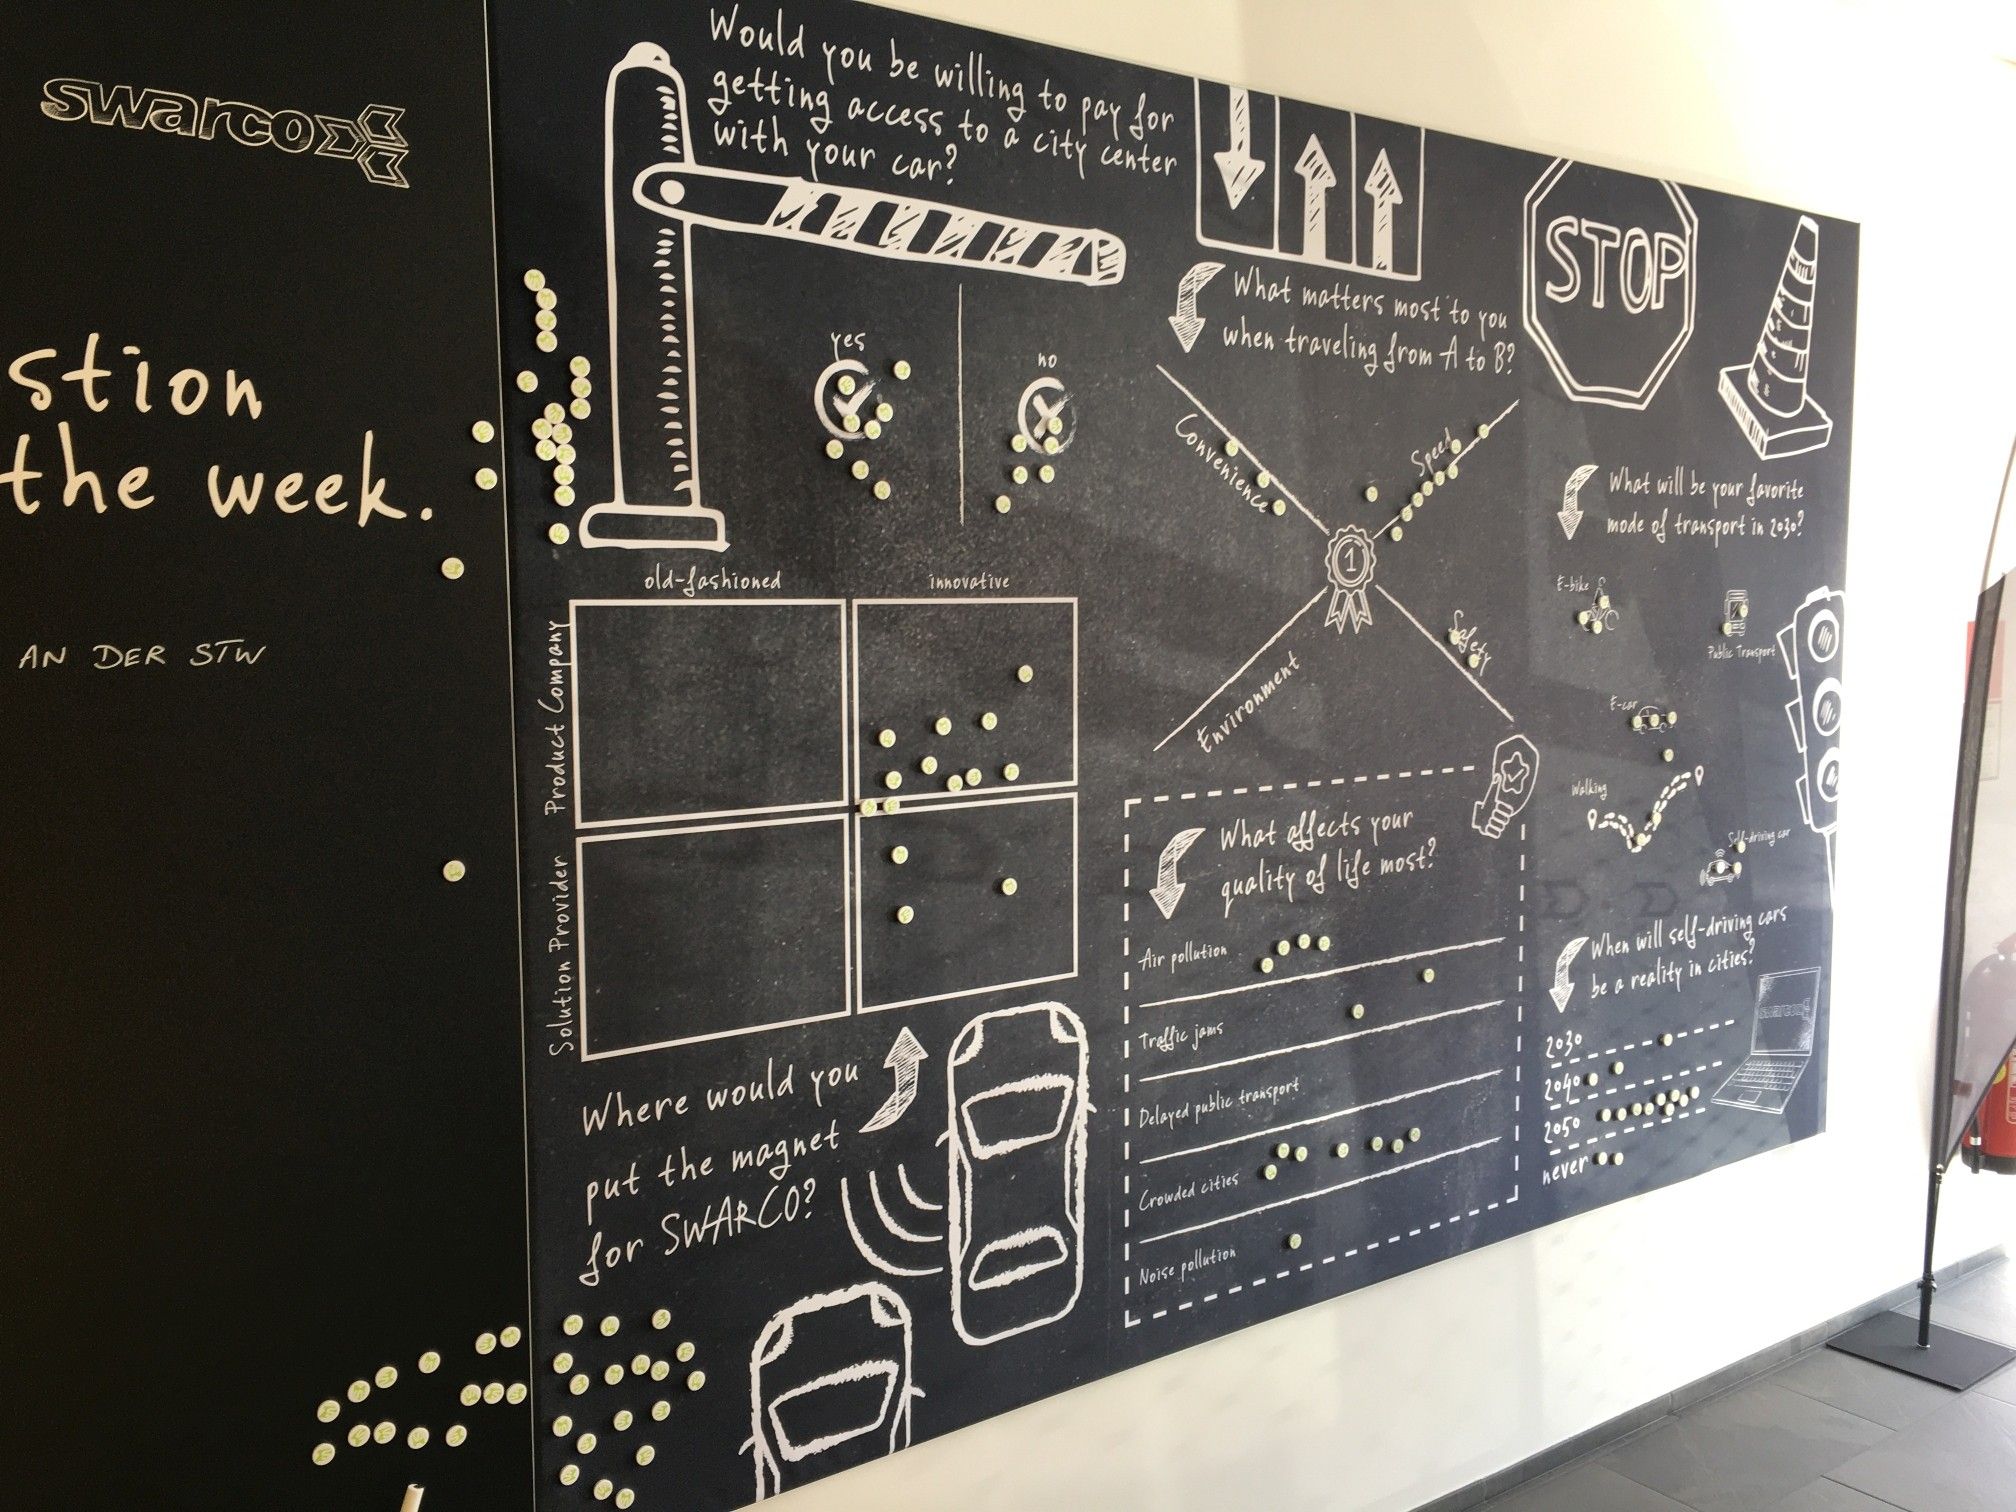 swarco
stion
the week.
AN DER STW
Would you be willing to pay for
getting access to a city center
with your car?
yes
no
old-fashioned
innovative
Product Company
Solution Provider
Where would you
put the magnet
for SWARCO?
What matters most to you
when traveling from A to B?
Convenience
Speed
1
Environment
Safety
What affects your
quality of life most?
Air pollution
Traffic jams
Delayed public transport
Crowded cities
Noise pollution
STOP
What will be your favorite
mode of transport in 2030?
E-bike
Public Transport
E-car
Walking
Self-driving car
When will self-driving cars
be a reality in cities?
2030
2040
2050
never
swarco